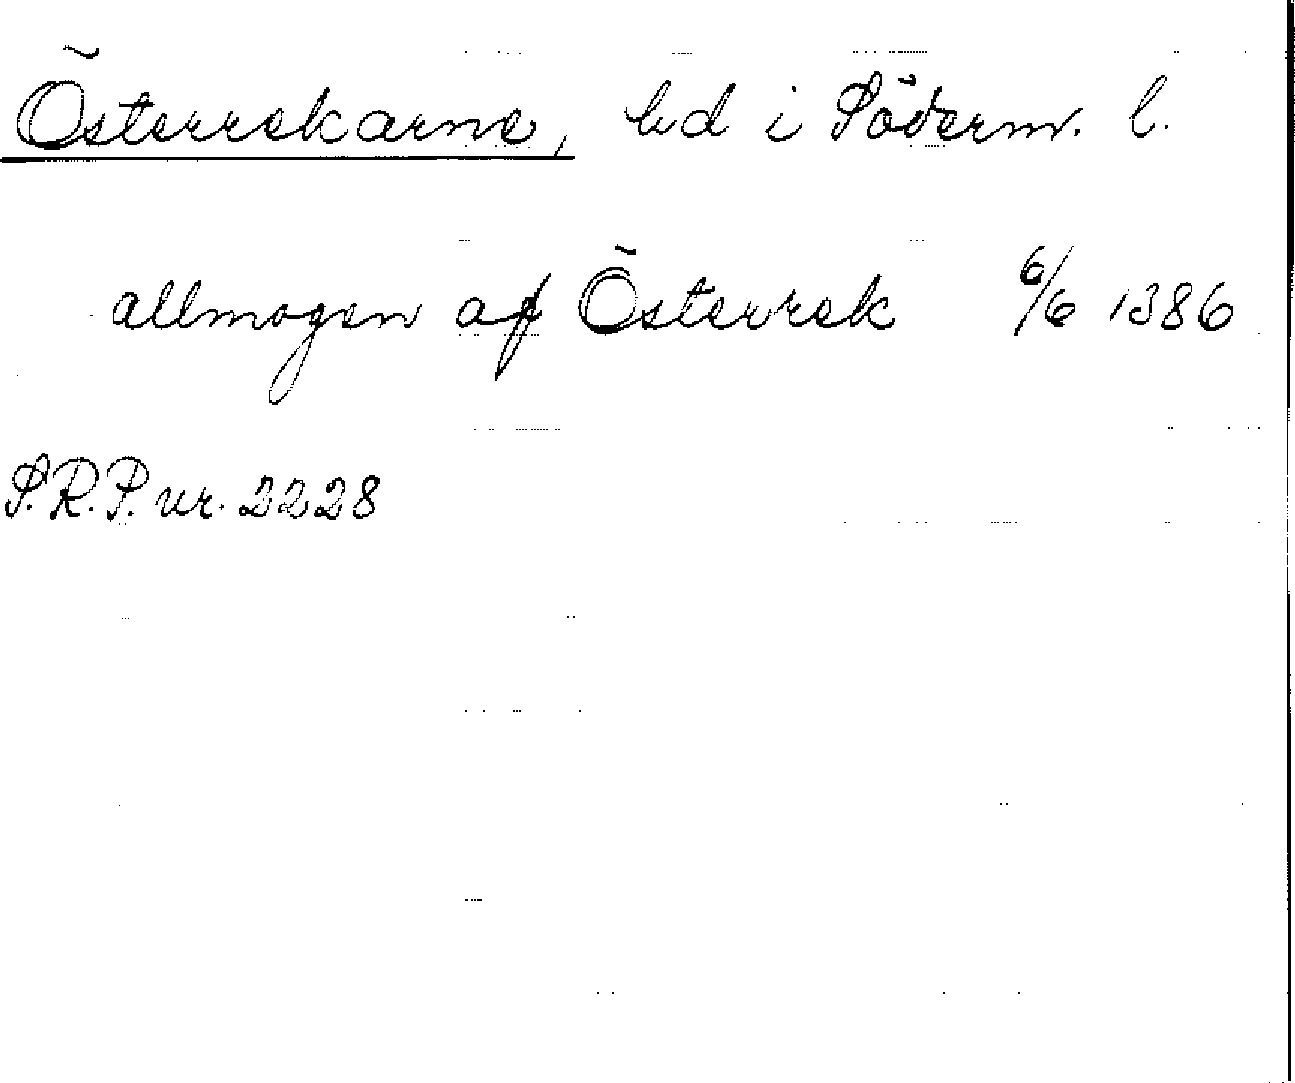 Österrekarne, hd i Söderm. l.
allmogen af Österrek 6/6 1386
S.R.P. nr. 2228